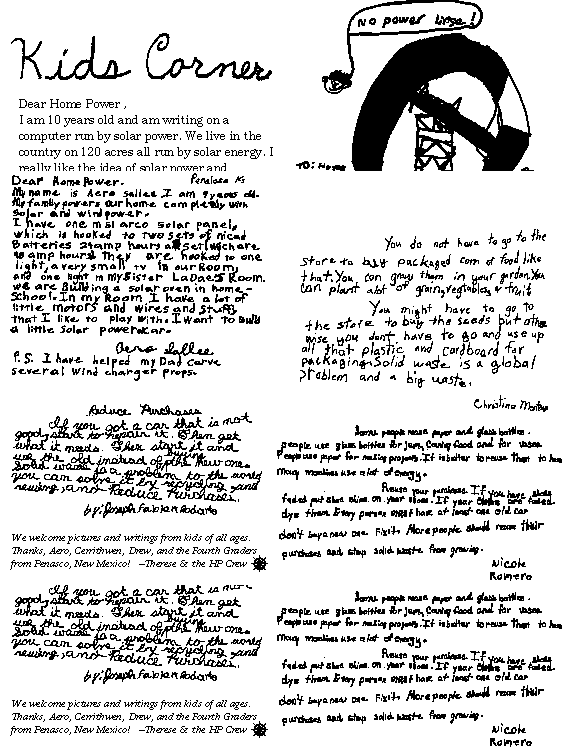 No power lines!
Kids Corner
Dear Home Power,
I am 10 years old and am writing on a
computer run by solar power. We live in the
country on 120 acres all run by solar energy. I
really like the idea of solar power and
TO: Home
Dear Home Power. Penelosa Ks
My name is Aero Sallee I am 9 years old.
My family powers our home completely with
Solar and windpower.
I have one m51 arco solar panel,
which is hooked to two sets of nicad
Batteries 24 amp hours a set which are
amp hours! They are hooked to one
light, a very small tv in our Room,
and one light in my Sister LaDae's Room.
we are Building a solar oven in home-
School. In my Room I have a lot of
little motors and wires and stuff
that I like to play with. I want to Build
a little Solar powerd car.
Aero Sallee
P.S. I have helped my Dad Carve
several wind charger props.
You do not have to go to the
store to buy packaged corn of food like
that. You can grow them in your garden. You
can plant alot of grain, vegtables, & fruit
You might have to go to
the store to buy the seeds but other
wise you don't have to go and use up
all that plastic and cardboard for
packaging. Solid waste is a global
problem and a big waste.
Christina
Reduce Purchases
If you got a car that is not
good, start to repair it. Then get
what it needs. Then start it and
use the old instead of buying the new one.
Solid waste is a problem to the world
you can solve it by recycling and
reusing, and Reduce Purchases.
by: Joseph Fabian
We welcome pictures and writings from kids of all ages.
Thanks, Aero, Cerrithwen, Drew, and the Fourth Graders
from Penasco, New Mexico! –Therese & the HP Crew
Some people reuse paper and glass bottles.
people use glass bottles for Jam, Caning food and for vases.
People use paper for making projects. It is better to reuse them to
many machines use alot of energy.
Reuse your purchase. If you have shoes
faded put Shoe Shine on your shoes. If your clothes are faded
dye them. Every person must have at least one old car
don't buy a new one. Fix it. More people should reuse their
purchases and stop solid waste from growing.
Nicole
Romero
If you got a car that is not
good, start to repair it. Then get
what it needs. Then start it and
use the old instead of buying the new one.
Solid waste is a problem to the world
you can solve it by recycling and
reusing, and Reduce Purchases.
by: Joseph Fabian
We welcome pictures and writings from kids of all ages.
Thanks, Aero, Cerrithwen, Drew, and the Fourth Graders
from Penasco, New Mexico! –Therese & the HP Crew
Some people reuse paper and glass bottles.
people use glass bottles for Jam, Caning food and for vases.
People use paper for making projects. It is better to reuse them to
many machines use alot of energy.
Reuse your purchase. If you have shoes
faded put Shoe Shine on your shoes. If your clothes are faded
dye them. Every person must have at least one old car
don't buy a new one. Fix it. More people should reuse their
purchases and stop solid waste from growing.
Nicole
Romero